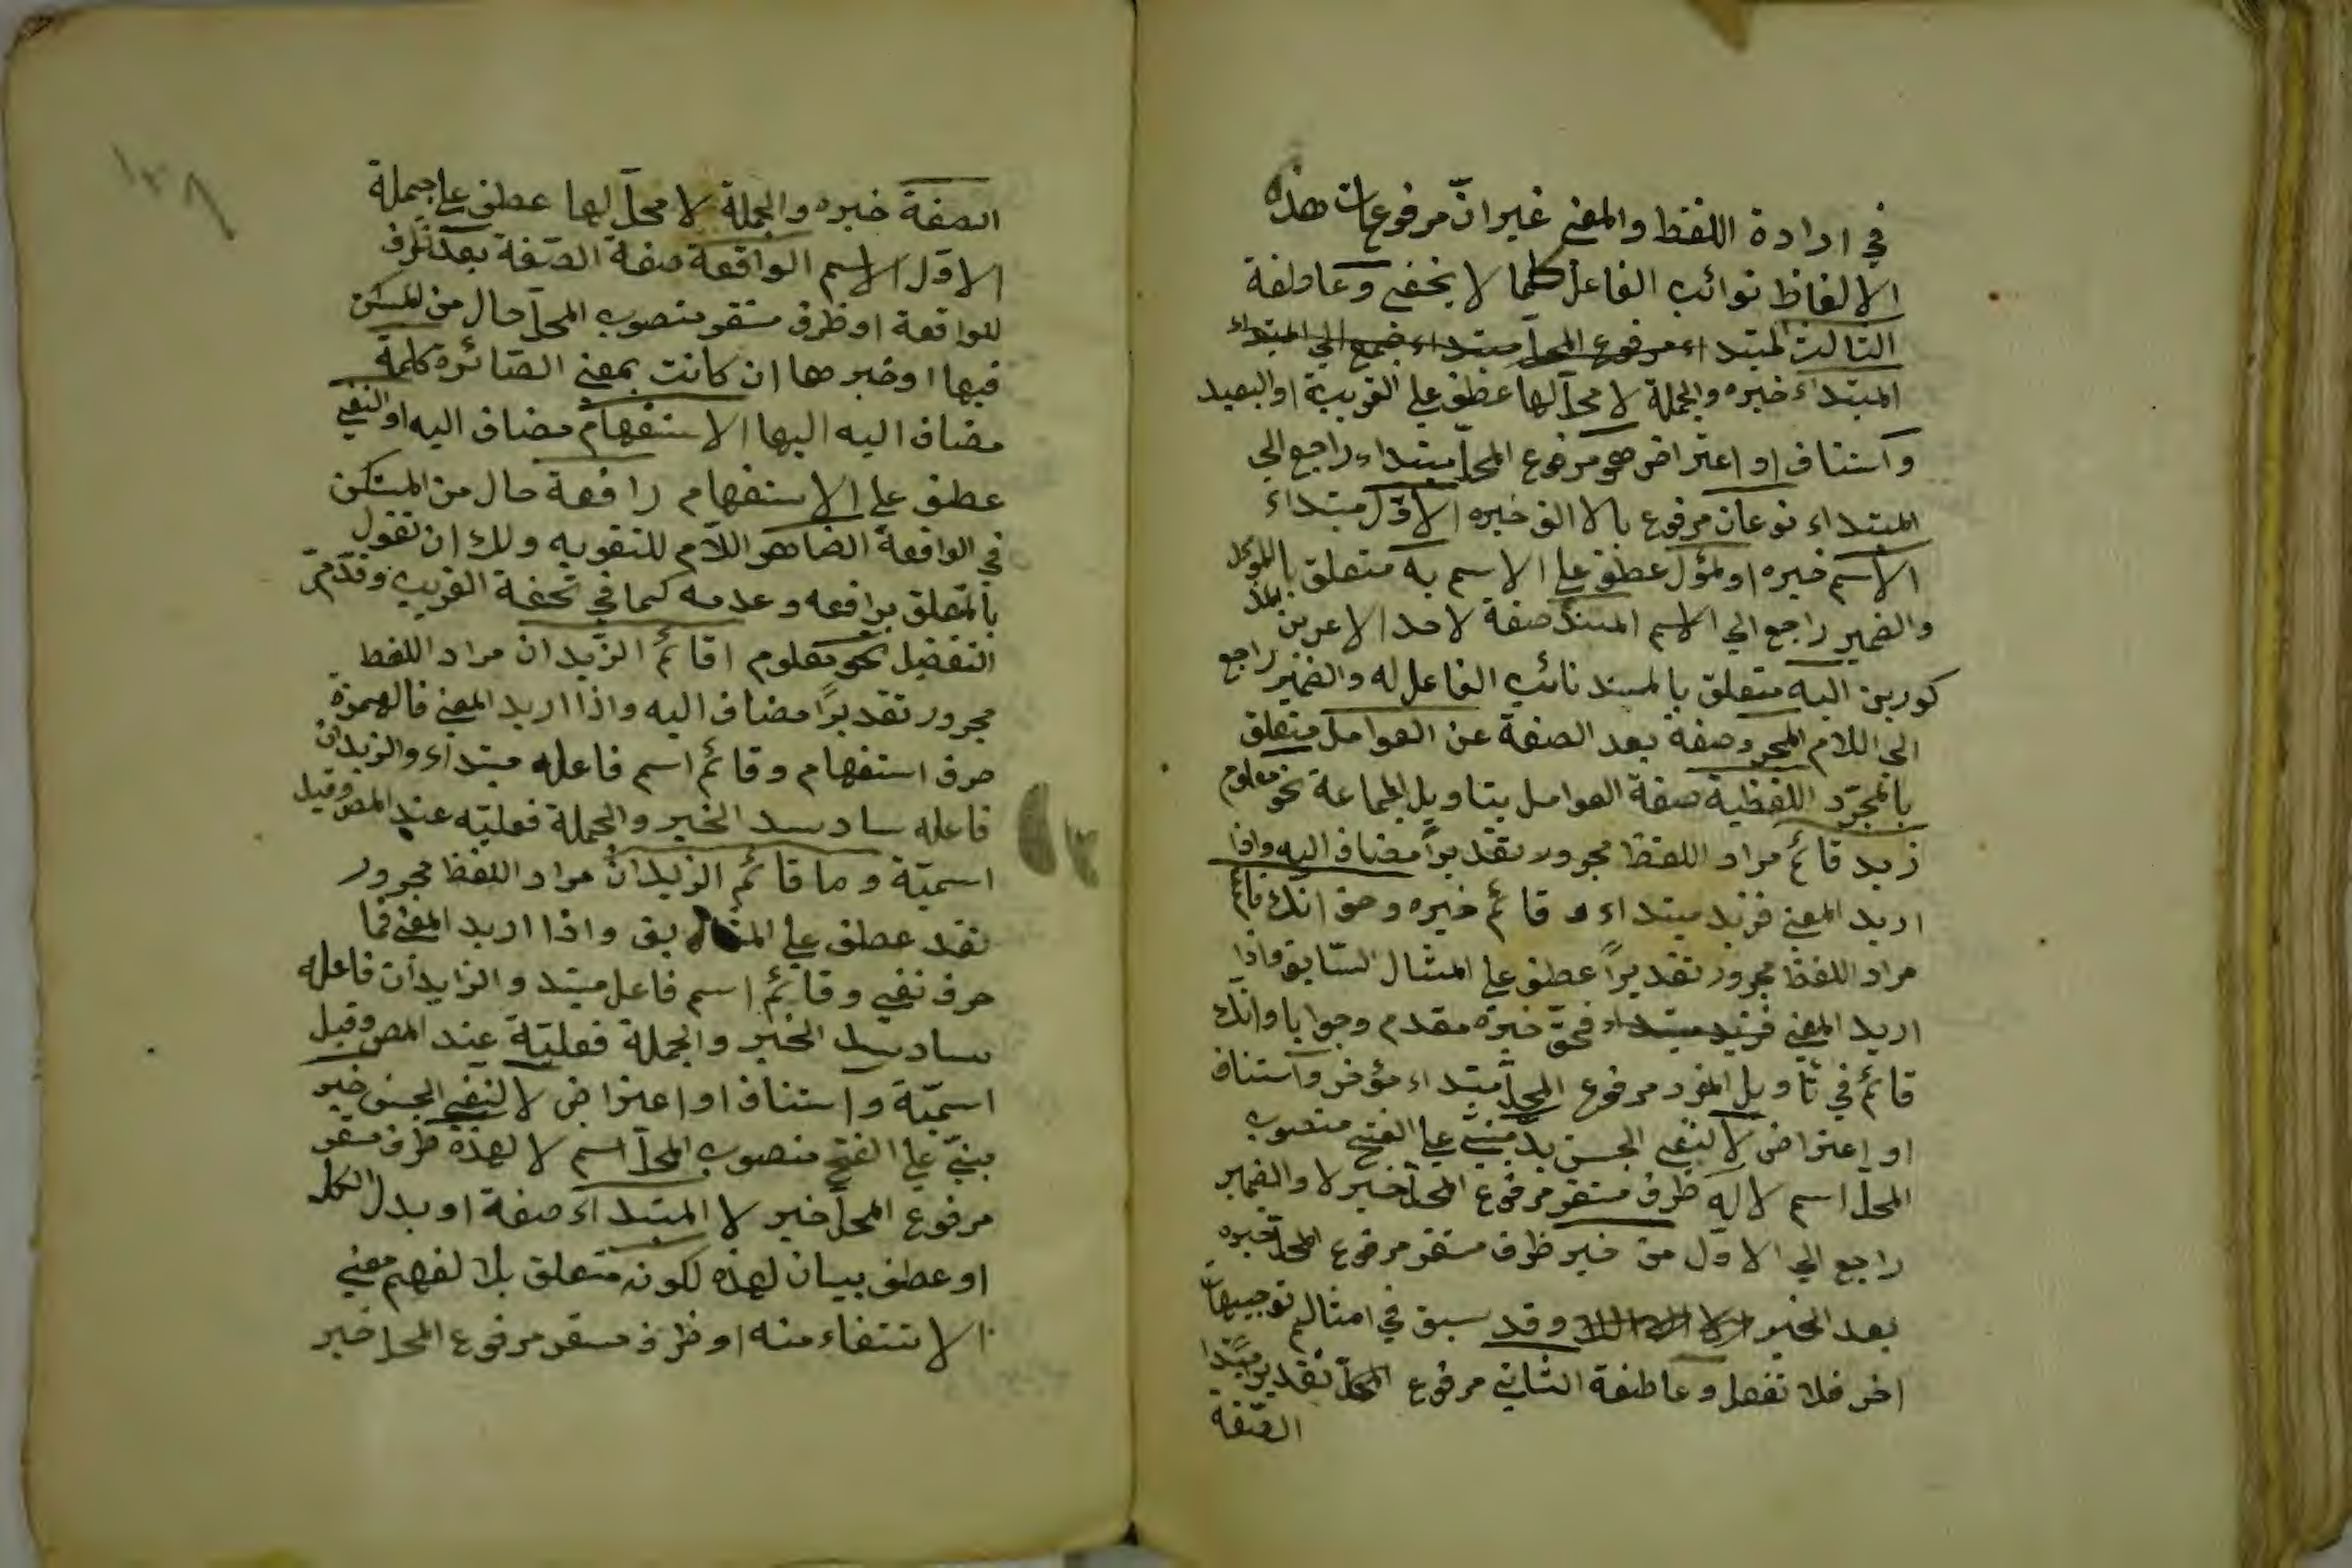 في ارادة اللفظ والمعنى غير انّ مرفوعات هذه
الالفاظ نوائب الفاعل كلما لا يخفى وعاطفة
الثالث المبتداء مرفوع المحل مبتداء المبتداء
المبتداء خبره والجملة لا محل لها عطف على القريبة او البعيد
واستناف او اعتراض هو مرفوع المحل مبتداء راجع الى
المبتداء نوعان مرفوع بالالف خبره الاوّل مبتداء
الاسم خبره او لمؤل عطف على الاسم به متعلق بالمؤل
والضمير راجع الى الاسم المسند صفة لاحد الامرين المذ
كورين اليه متعلق بالمسند نائب الفاعل له والضمير راجع
الى اللام المجرد صفة بعد الصفة عن العوامل متعلق
بالمجرّد اللفظية صفة العوامل بتاويل الجماعة نحو معلوم
زيد قائم مراد اللفظ مجرور تقديراً مضاف اليه واذا
اريد المعنى فزيد مبتداء و قائم خبره وحق انك قائم
مراد اللفظ مجرور تقديراً عطف على المثال السّابق واذا
اريد المعنى فزيد مبتداء فحقّ خبره مقدم وجوابا وانك
قائم في تاويل المفرد مرفوع المحل مبتداء مؤخر واستناف
او اعتراض لا لنفى الجنس بدّ مبنيّ على الفتح منصوب
المحل اسم لا له ظرف مستقر مرفوع المحل خبر لا والضمير
راجع الى الاول من خبر ظرف مستقر مرفوع المحل خبره
بعد الخبر وقد سبق في امثالهم توجيهات
اخر فلا تغفل وعاطفة الثاني مرفوع المحل تقديرا مبتدا
الصّفة
١٣٨
الصفة خبره والجملة لا محلّ لها عطف على جملة
الاوّل الاسم الواقعة صفة الصّفة بعد ظرف
للواقعة او ظرف مستقر منصوب المحل حال من المستكن
فيها او خبرها ان كانت بمعنى الصّائرة كلمة
مضاف اليه اليها الاستفهام مضاف اليه او النفى
عطف على الاستفهام رافعة حال من المستكن
في الواقعة الظاهر اللّام للتقويه ولك ان تقول
بالمتعلق برافعه وعدمه كما في تحفة الغريب وقد مرّ
التفصيل نحو معلوم اقائم الزّيدان مراد اللفظ
مجرور تقديراً مضاف اليه واذا اريد المعنى فالهمزة
حرف استفهام وقائم اسم فاعله مبتداء والزيدان
فاعله سادسد الخبر والجملة فعليّه عند المصر وقيل
اسميّة وما قائم الزيدان مراد اللفظ مجرور
تقد عطف على المثال بق واذا اريد المعنى فما
حرف نفى وقائم اسم فاعل مبتد والزايدان فاعله
سادسد الخبر والجملة فعليّة عند المصر وقيل
اسميّة واستناف او اعتراض لا لنفى الجنس خبر
مبنيّ على الفتح منصوب المحل اسم لا لهذه ظرف مستقر
مرفوع المحل خبر لا المبتداء صفة او بدل الكل
او عطف بيان لهذه لكونه متعلق بلا لفهم معنى
الانتفاء منه او ظرف مستقر مرفوع المحل خبر